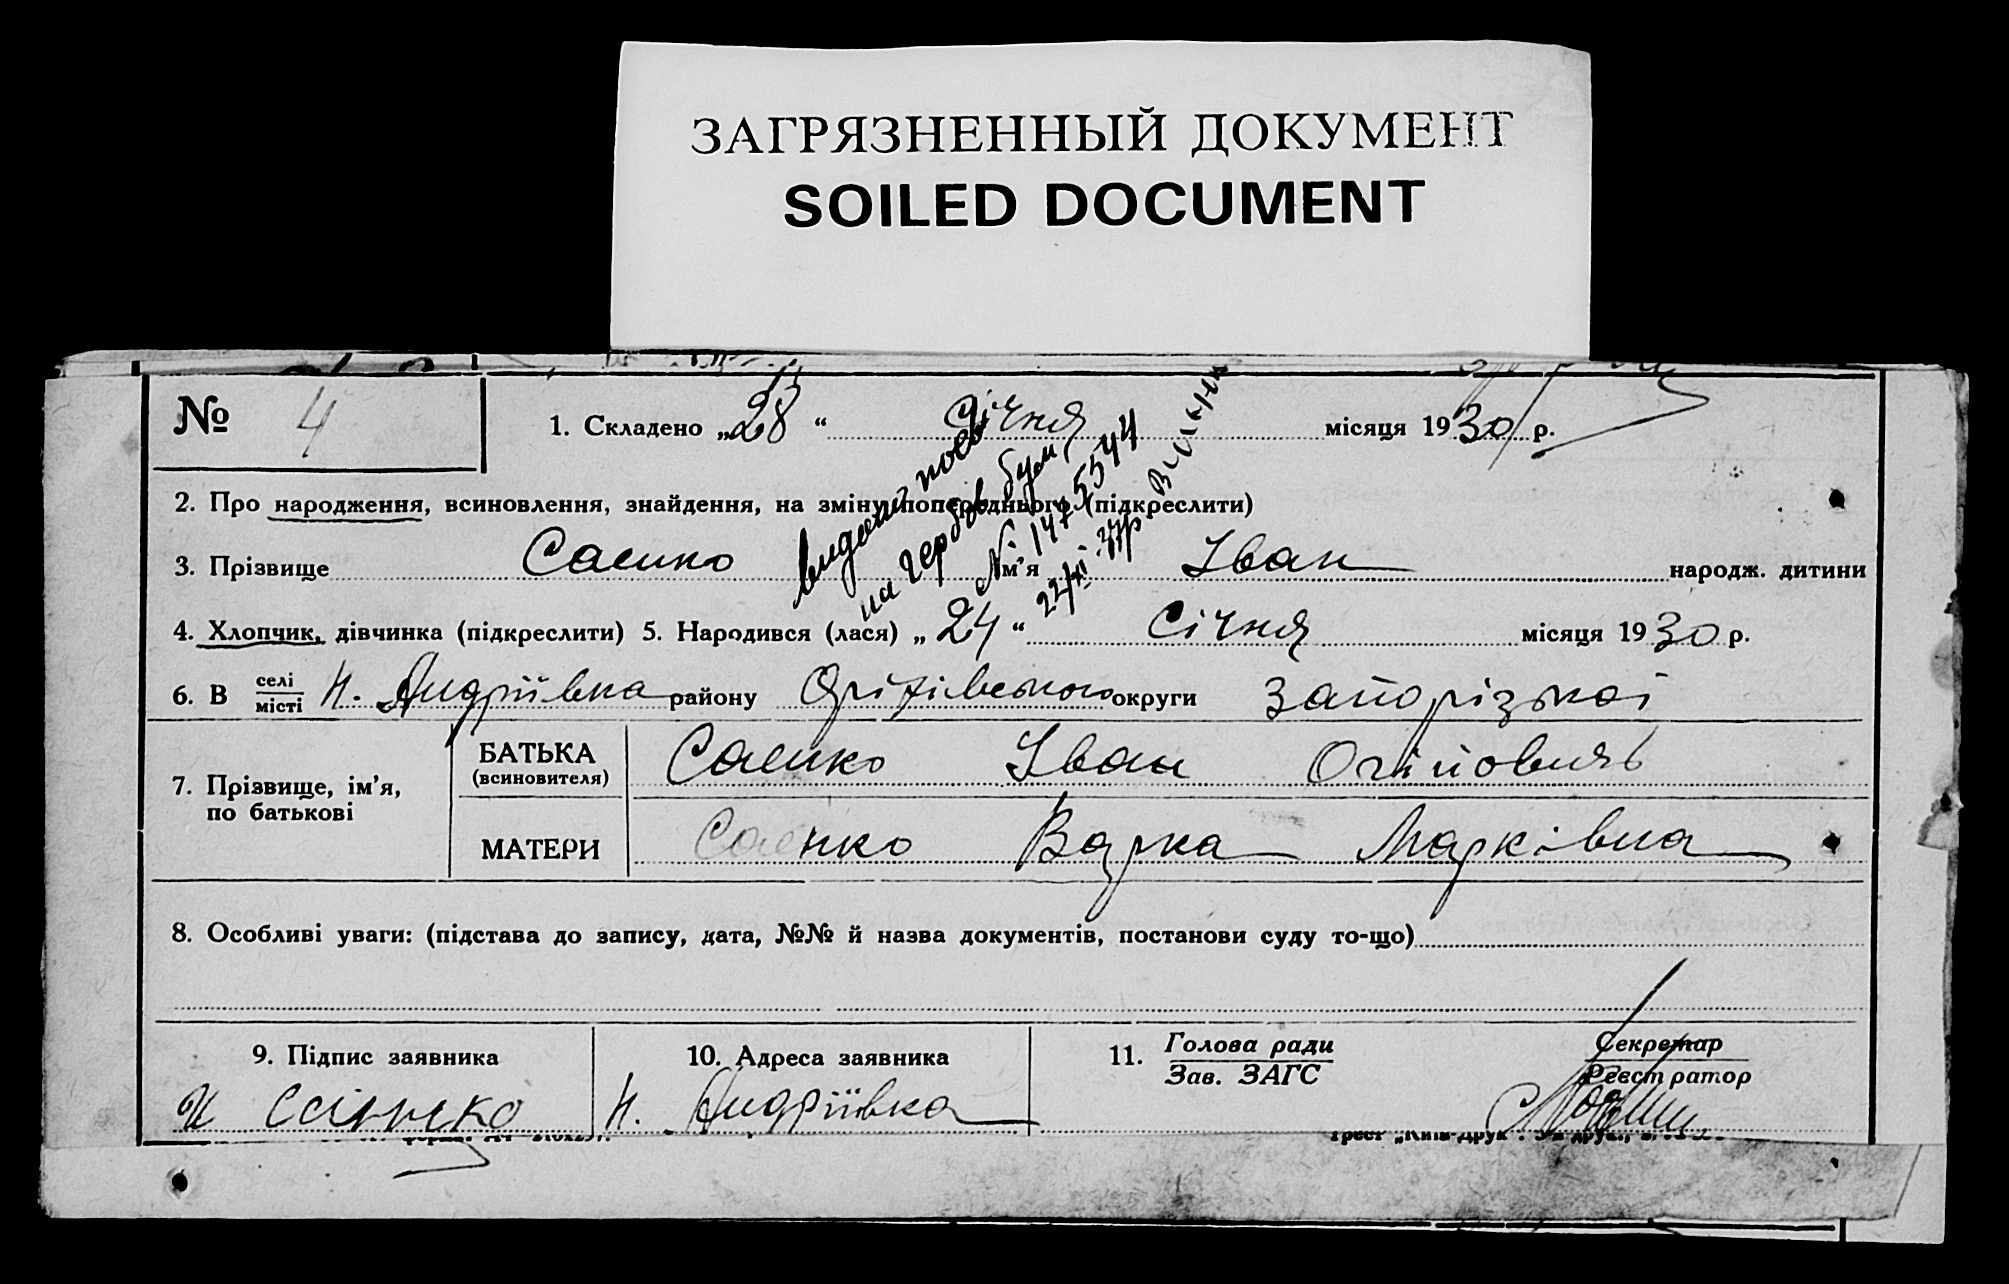 ЗАГРЯЗНЕННЫЙ ДОКУМЕНТ
SOILED DOCUMENT
№ 4
1. Складено „28“ Січня місяця 1930 р.
2. Про народження, всиновлення, знайдення, на зміну попереднього (підкреслити)
3. Прізвище Саенко Ім'я Іван народж. дитини
4. Хлопчик, дівчинка (підкреслити) 5. Народився (лася) „24“ Січня місяця 1930 р.
6. В селі місті Н. Андріївка району Оріхівського округи Запорізької
7. Прізвище, ім'я, по батькові
БАТЬКА (всиновителя) Саенко Іван
МАТЕРИ Саенко Варка Марківна
8. Особливі уваги: (підстава до запису, дата, №№ й назва документів, постанови суду то-що)
9. Підпис заявника
10. Адреса заявника
Н. Андріївка
11. Голова ради Зав. ЗАГС
Секретар Реєстратор